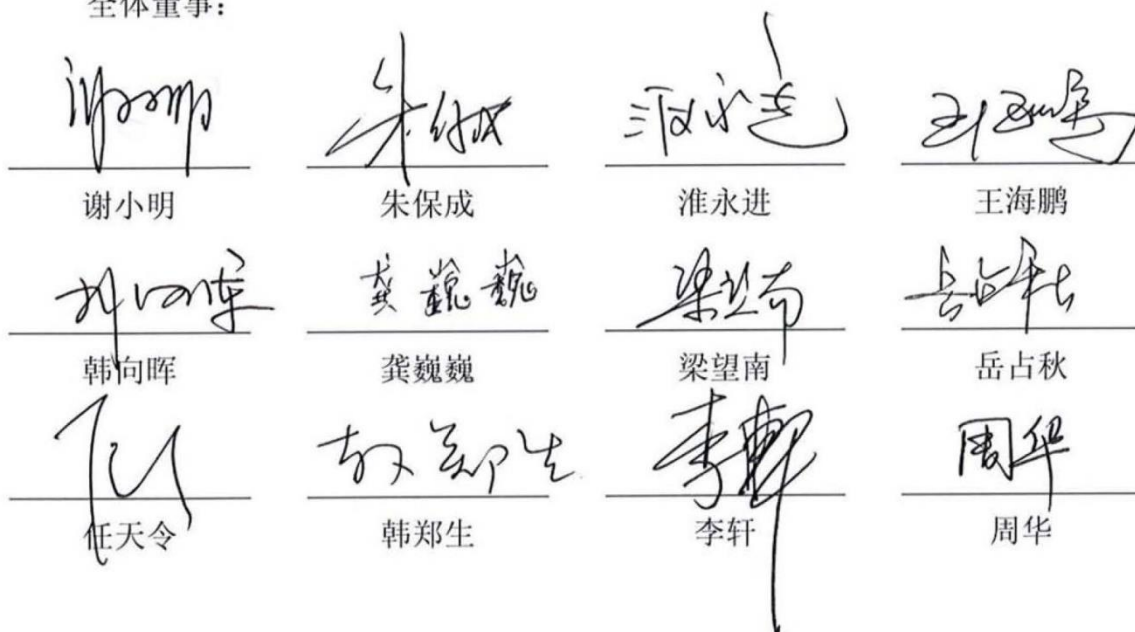 全体董事：
谢小明 朱保成 淮永进 王海鹏
谢小明 朱保成 淮永进 王海鹏
韩向晖 龚巍巍 梁望南 岳占秋
韩向晖 龚巍巍 梁望南 岳占秋
韩郑生 李轩 周华
任天令 韩郑生 李轩 周华